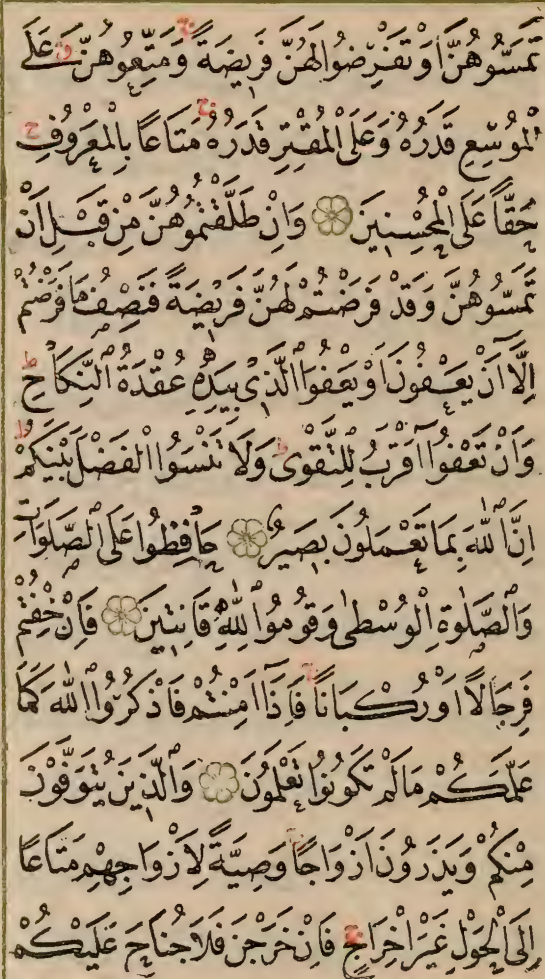 تَمَسُّوهُنَّ اَوْ تَفْرِضُوا لَهُنَّ فَرِيضَةً وَمَتِّعُوهُنَّ عَلَى
الْمُوسِعِ قَدَرُهُ وَعَلَى الْمُقْتِرِ قَدَرُهُ مَتَاعًا بِالْمَعْرُوفِ
حَقًّا عَلَى الْمُحْسِنِينَ وَاِنْ طَلَّقْتُمُوهُنَّ مِنْ قَبْلِ اَنْ
تَمَسُّوهُنَّ وَقَدْ فَرَضْتُمْ لَهُنَّ فَرِيضَةً فَنِصْفُ مَا فَرَضْتُمْ
اِلَّا اَنْ يَعْفُونَ اَوْ يَعْفُوَا الَّذِى بِيَدِهِ عُقْدَةُ النِّكَاحِ
وَاَنْ تَعْفُوا اَقْرَبُ لِلتَّقْوٰى وَلَا تَنْسَوُا الْفَضْلَ بَيْنَكُمْ
اِنَّ اللّٰهَ بِمَا تَعْمَلُونَ بَصِيرٌ حَافِظُوا عَلَى الصَّلَوَاتِ
وَالصَّلٰوةِ الْوُسْطٰى وَقُومُوا لِلّٰهِ قَانِتِينَ فَاِنْ خِفْتُمْ
فَرِجَالًا اَوْ رُكْبَانًا فَاِذَا اَمِنْتُمْ فَاذْكُرُوا اللّٰهَ كَمَا
عَلَّمَكُمْ مَا لَمْ تَكُونُوا تَعْلَمُونَ وَالَّذِينَ يُتَوَفَّوْنَ
مِنْكُمْ وَيَذَرُونَ اَزْوَاجًا وَصِيَّةً لِاَزْوَاجِهِمْ مَتَاعًا
اِلَى الْحَوْلِ غَيْرَ اِخْرَاجٍ فَاِنْ خَرَجْنَ فَلَا جُنَاحَ عَلَيْكُمْ